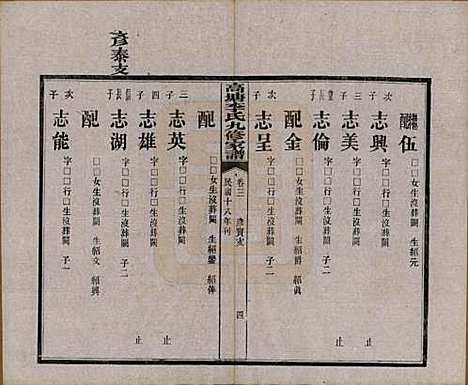 彥泰支
繼配伍
□□女生沒葬闕 生紹元
次子 志興
字□□行□生沒葬闕 子一
三子 志美
字□□行□生沒葬闕
止
長子 志倫
字□□行□生沒葬闕
止
配金
□□女生沒葬闕 生紹爵 紹眞
子 志呈
字□□行□生沒葬闕 子二
配
□□女生沒葬闕 生紹 紹
高塘李氏九修家譜
卷三 彥寶支
民國十八年刊
四
三子 志英
字□□行□生沒葬闕
止
四子 志雄
字□□行□生沒葬闕
止
長子 志湖
字□□行□生沒葬闕 子二
配
□□女生沒葬闕 生紹文 紹興
次子 志能
字□□行□生沒葬闕 子一